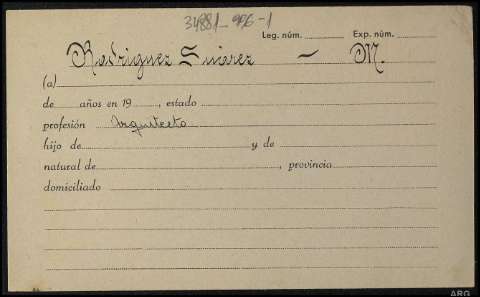 34881_996-1
Leg. núm. Exp. núm.
Rodriguez Suárez - M.
(a)
de años en 19 , estado
profesión Arquitecto
hijo de y de
natural de , provincia
domiciliado
ARG